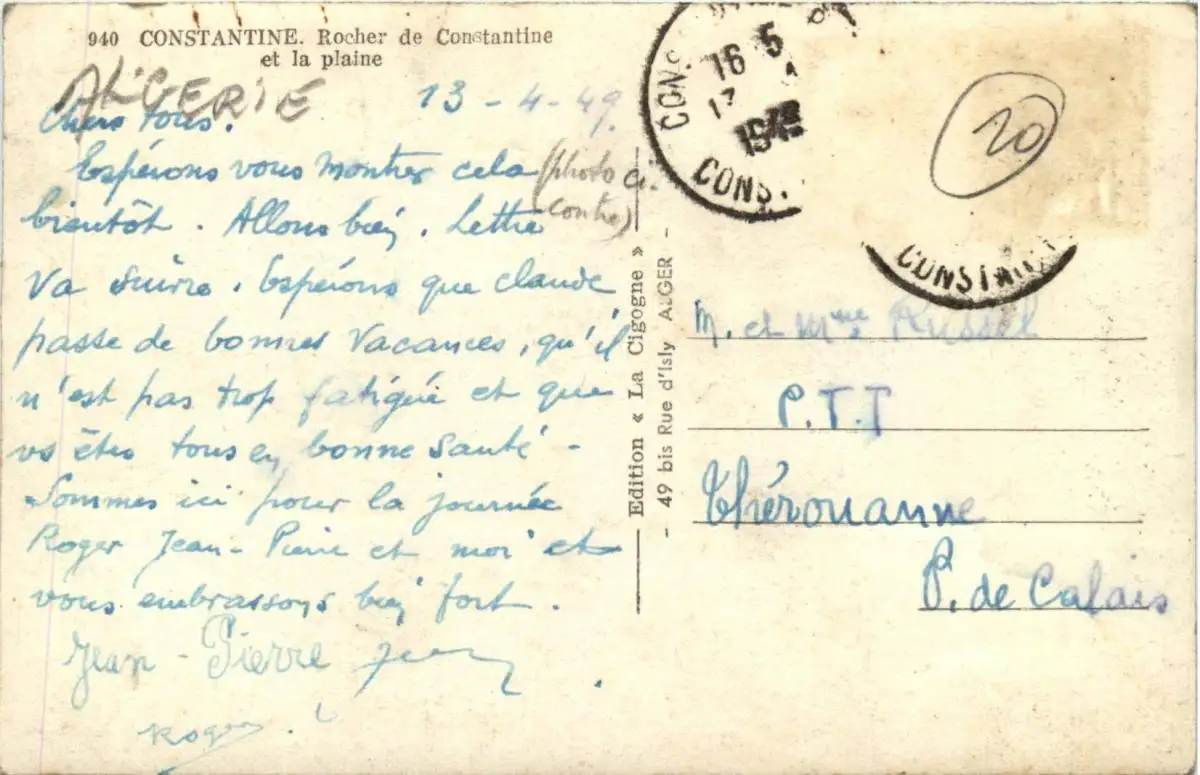 940 CONSTANTINE. Rocher de Constantine
et la plaine
ALGERIE
13-4-49.
Chers tous.
Espérons vous montrer cela (photo ci-
contre)
bientôt. Allons bien. Lettre
va suivre. Espérons que claude
passe de bonnes vacances, qu'il
n'est pas trop fatigué et que
vs êtes tous en bonne santé -
Sommes ici pour la journée
Roger Jean-Pierre et moi et
vous embrassons bien fort.
Jean-Pierre
Roger
Edition « La Cigogne »
- 49 bis Rue d'Isly ALGER -
16 5
CONS.
CONSTAN
20
M. et Mme Russel
P.T.T
Thérouanne
P. de Calais